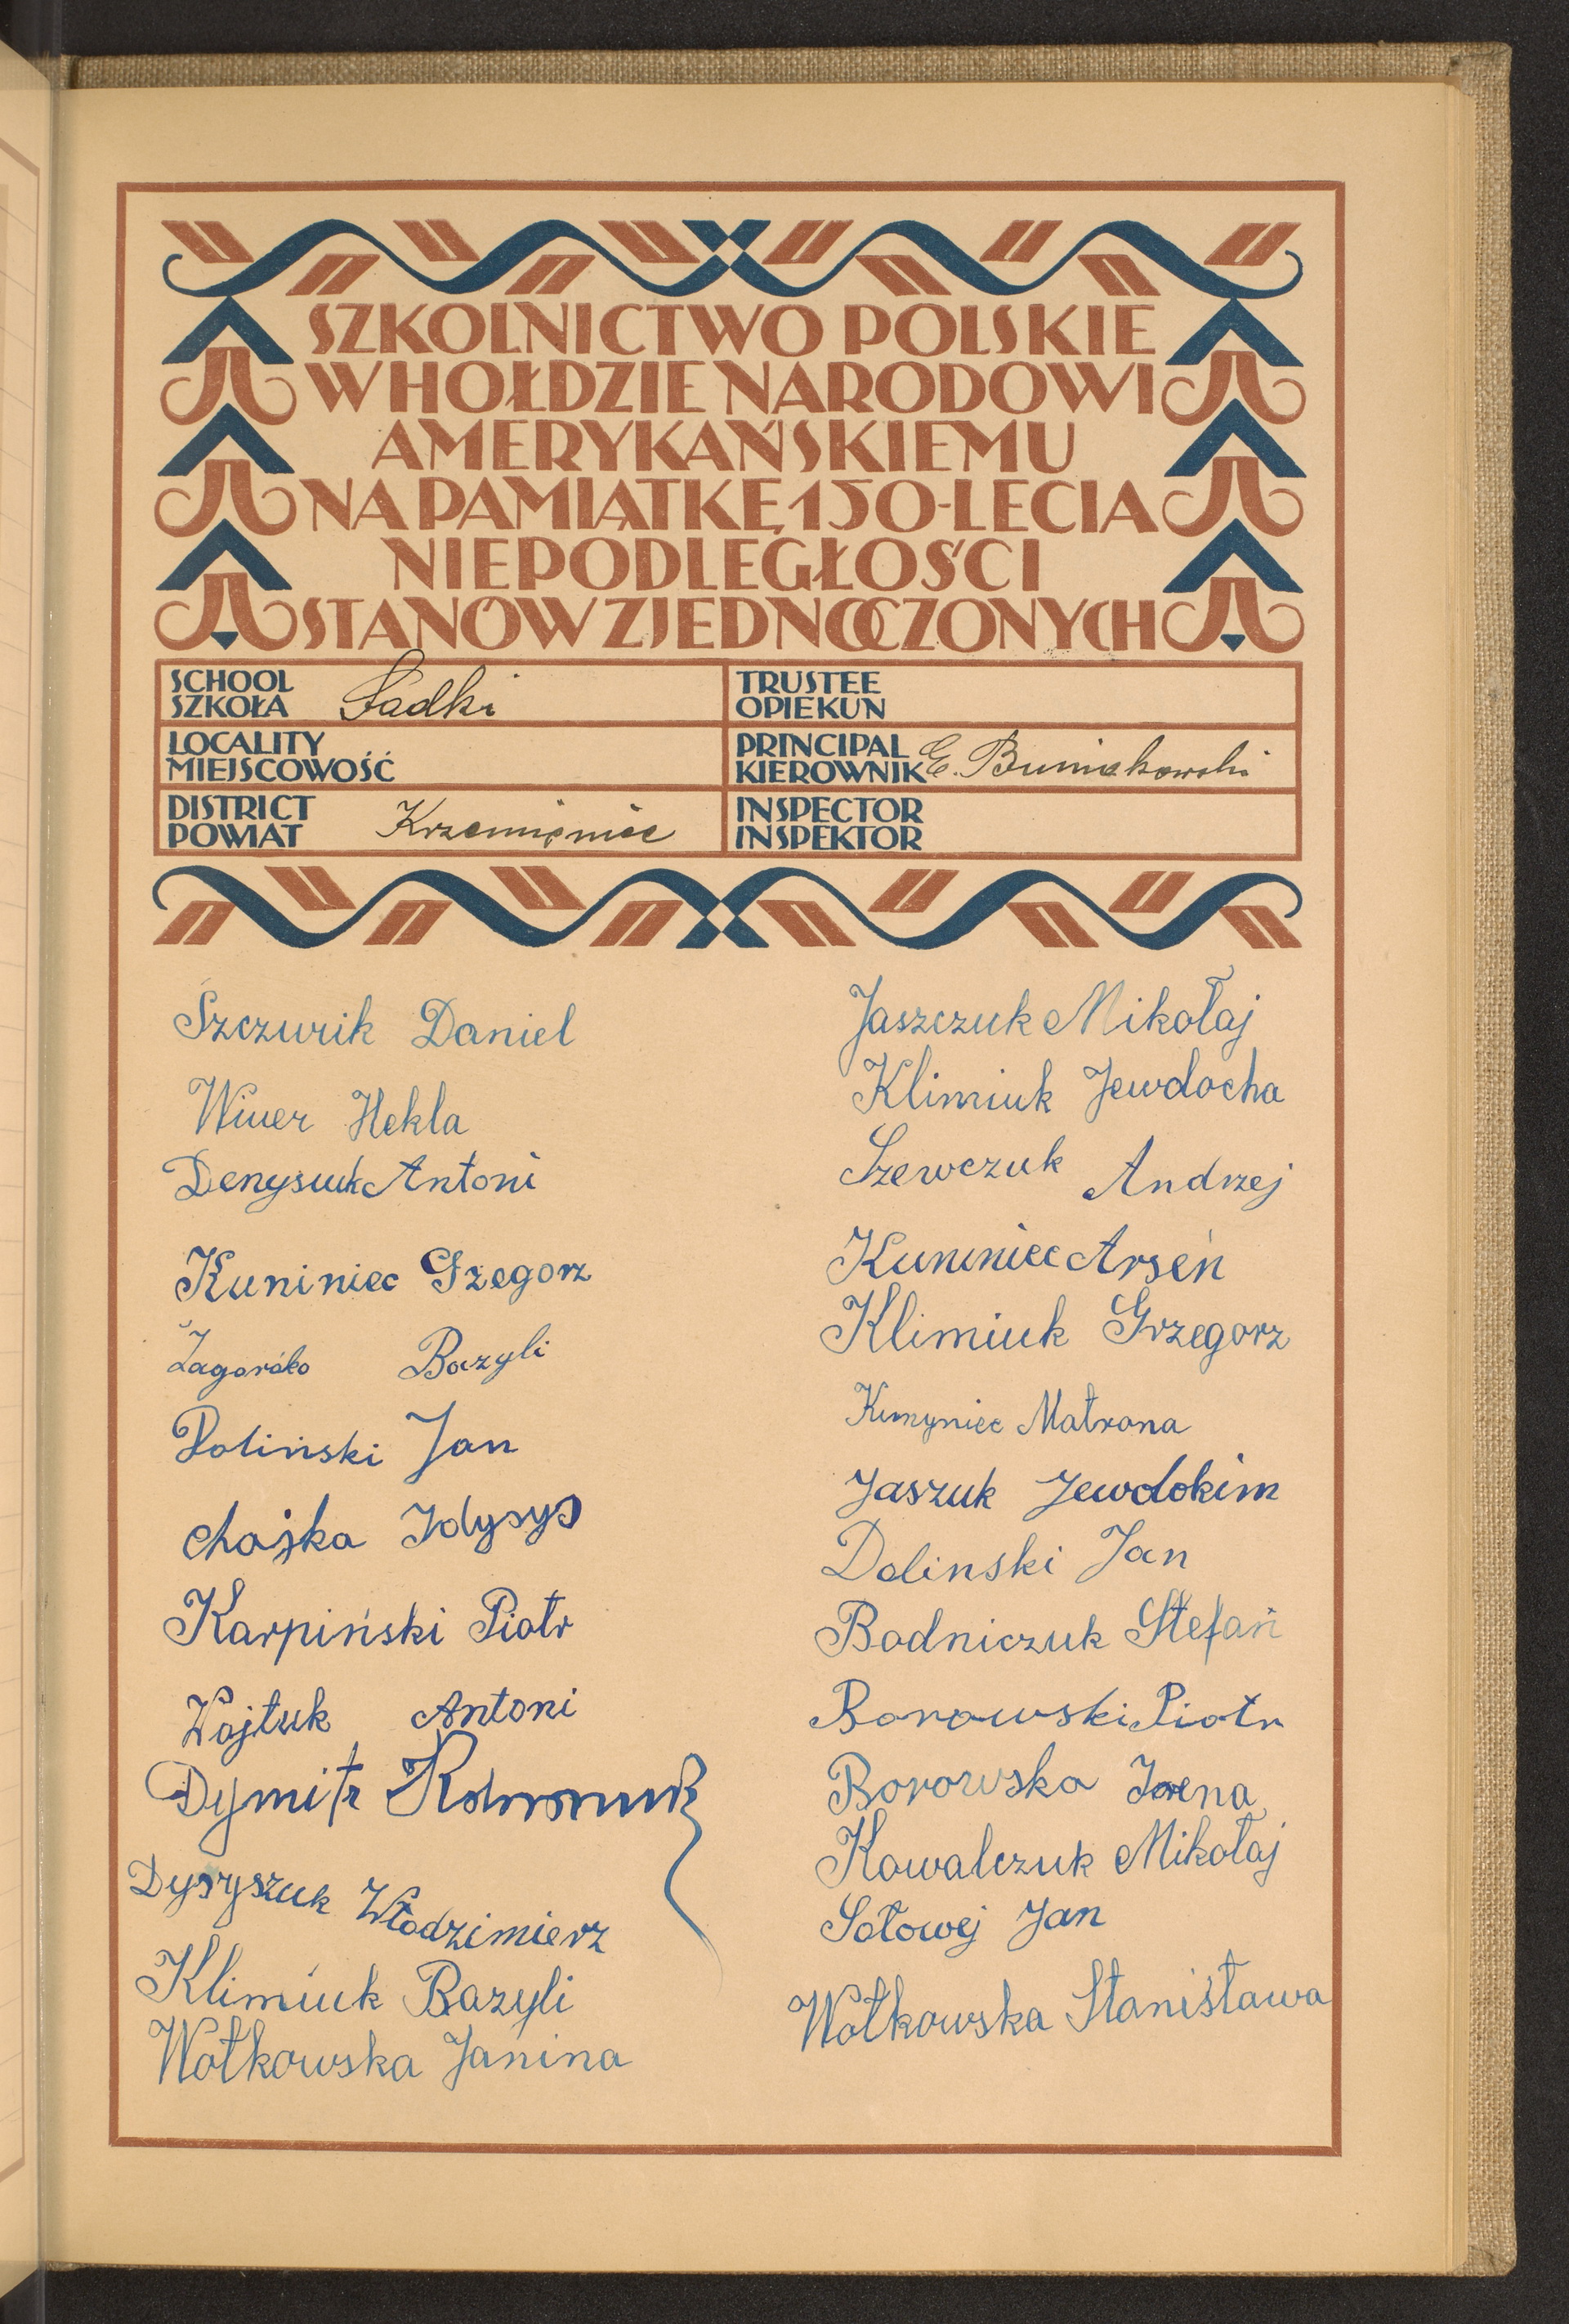 SZKOLNICTWO POLSKIE
W HOŁDZIE NARODOWI
AMERYKAŃSKIEMU
NA PAMIĄTKĘ 150-LECIA
NIEPODLEGŁOŚCI
STANÓW ZJEDNOCZONYCH
SCHOOL
SZKOŁA Sadki
TRUSTEE
OPIEKUN
LOCALITY
MIEJSCOWOŚĆ
PRINCIPAL
KIEROWNIK E. Buniakowski
DISTRICT
POWIAT Krzemieniec
INSPECTOR
INSPEKTOR
Szczurik Daniel
Wiwer Hekla
Denysiuk Antoni
Kuniniec Gzegorz
Bazyli
Doliński Jan
Chajka
Karpiński Piotr
Wojtuk Antoni
Dymitr
Włodzimierz
Klimiuk Bazyli
Wołkowska Janina
Jaszczuk Mikołaj
Klimiuk Jewdocha
Szewczuk Andrzej
Kuniniec Arseń
Klimiuk Grzegorz
Matrona
Jaszuk Jewdokim
Dolinski Jan
Bodniczuk Stefań
Borowski Piotr
Borowska Irena
Kowalczuk Mikołaj
Sołowej Jan
Wołkowska Stanisława